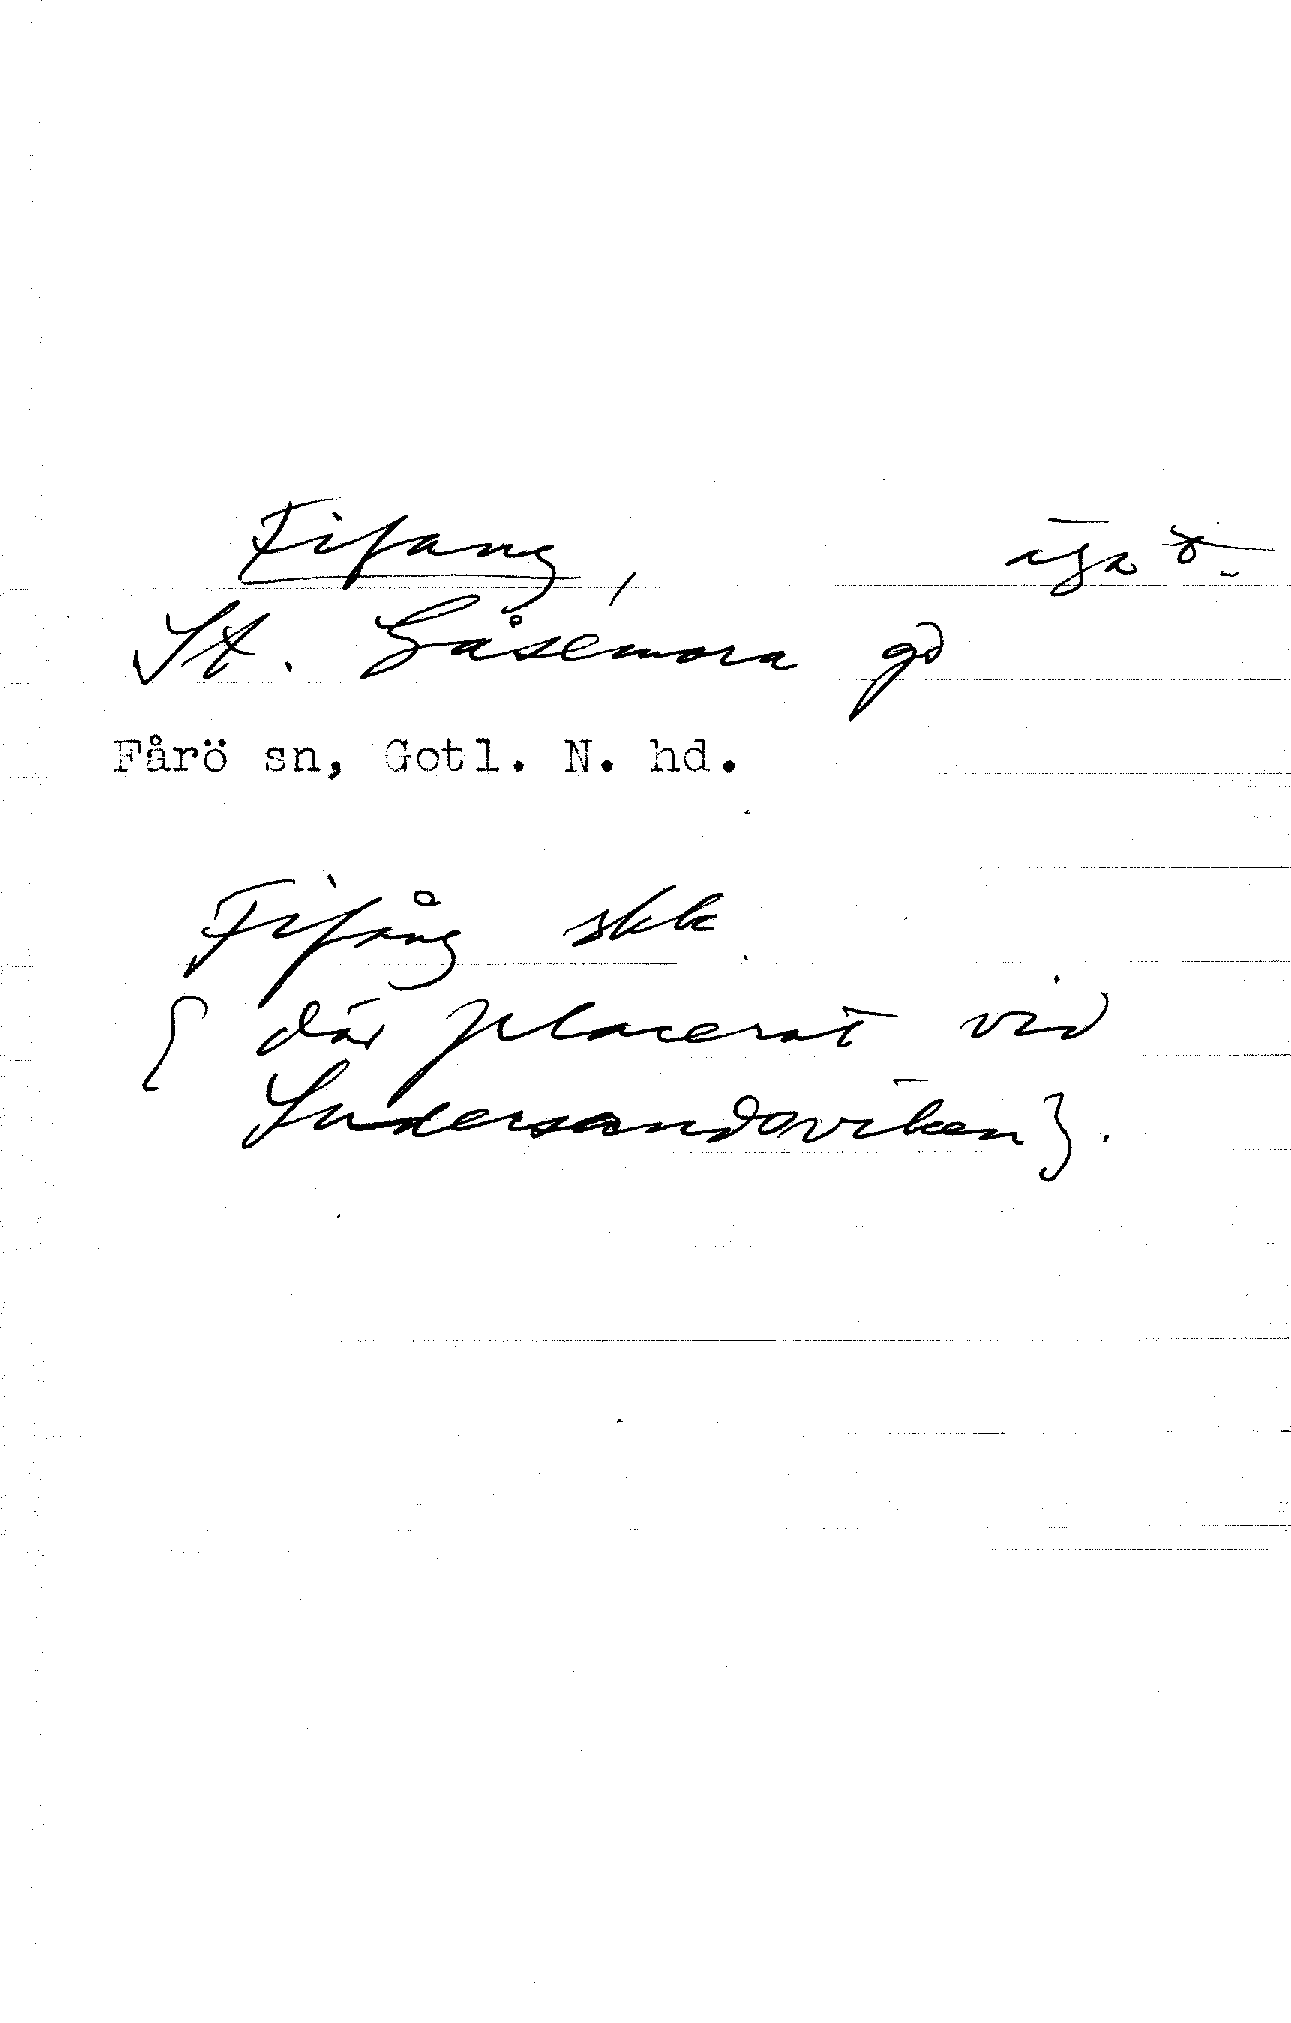 Fifang, äga
St. Gåsemora gd
Fårö sn, Gotl. N. hd.
Fifång skk
{ där placerat vid
Sudersandsviken}.